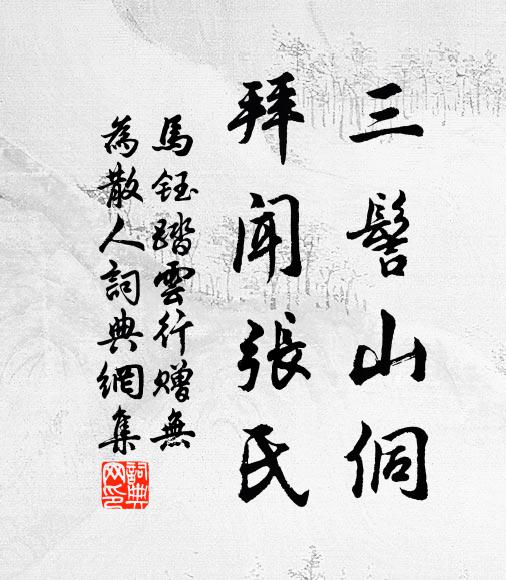 三髻山侗
拜闻張氏
馬鈺踏雲行贈無
為散人詞典網集
詞典網印